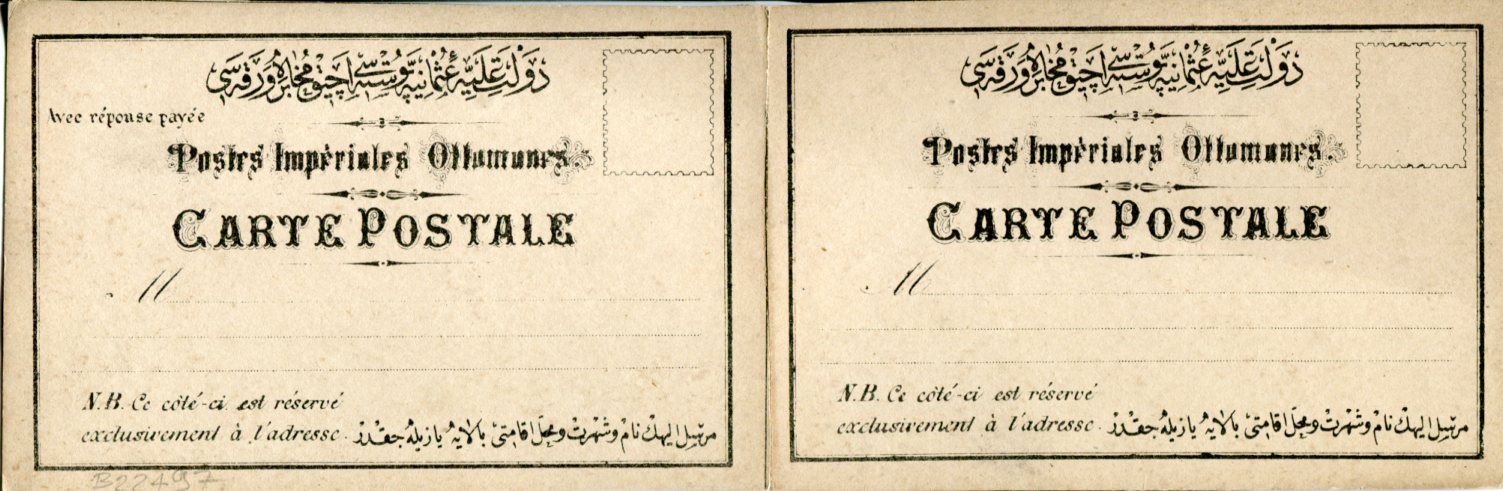 دَوْلَتِ عَلِيَّهٔ عُثْمَانِيَّه پُوسْتَهسِى اَچِيق مُخَابَرَه وَرَقَهسِى
Avec réponse payée
Postes Impériales Ottomanes.
CARTE POSTALE
M
N.B. Ce côté-ci est réservé
exclusivement à l'adresse.
مرسل اليهك نام وشهرت ومحل اقامتى بالايه يازيله جقدر
B22497
دَوْلَتِ عَلِيَّهٔ عُثْمَانِيَّه پُوسْتَهسِى اَچِيق مُخَابَرَه وَرَقَهسِى
Postes Impériales Ottomanes.
CARTE POSTALE
M
N.B. Ce côté-ci est réservé
exclusivement à l'adresse.
مرسل اليهك نام وشهرت ومحل اقامتى بالايه يازيله جقدر